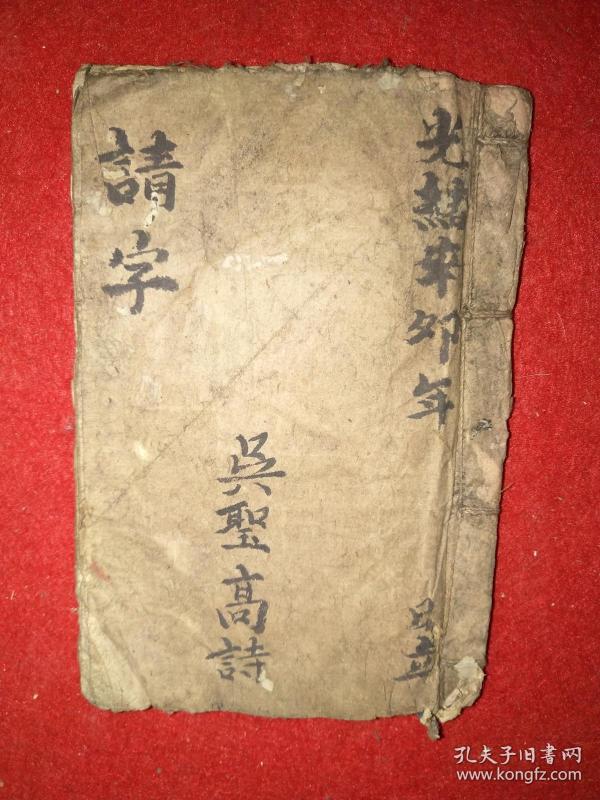 光緒辛卯年 日立
吳聖高詩
請字
孔夫子旧書网
www.kongfz.com